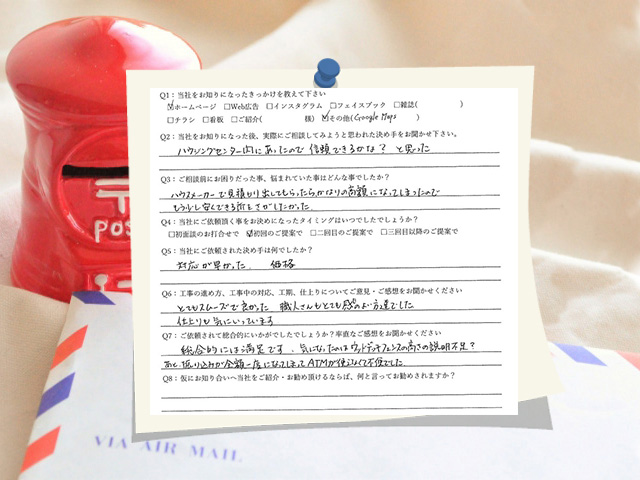 Q1：当社をお知りになったきっかけを教えて下さい
☑ホームページ □Web広告 □インスタグラム □フェイスブック □雑誌( )
□チラシ □看板 □ご紹介( 様) ☑その他(Google Maps )
Q2：当社をお知りになった後、実際にご相談してみようと思われた決め手をお聞かせ下さい。
ハウジングセンター内にあったので信頼できるかな？と思った
Q3：ご相談前にお困りだった事、悩まれていた事はどんな事でしたか？
ハウスメーカーで見積り出してもらったらかなりの高額になってしまったので
もう少し安くできる所をさがしたかった
Q4：当社にご依頼頂く事をお決めになったタイミングはいつでしたでしょうか？
□初面談のお打合せで ☑初回のご提案で □二回目のご提案で □三回目以降のご提案で
Q5：当社にご依頼された決め手は何でしたか？
対応が早かった. 価格
Q6：工事の進め方、工事中の対応、工期、仕上りについてご意見・ご感想をお聞かせください
とてもスムーズで良かった 職人さんもとても感じのよい方達でした
仕上りも気にいっています
Q7：ご依頼されて総合的にいかがでしたでしょうか？率直なご感想をお聞かせください
総合的には満足です. 気になったのはウッドデッキフェンスの高さの説明不足？
あと、振り込みが全額一度になってしまってATMが使えなくて不便でした
Q8：仮にお知り合いへ当社をご紹介・お勧め頂けるならば、何と言ってお勧めされますか？
〒
POS
VIA AIR MAIL